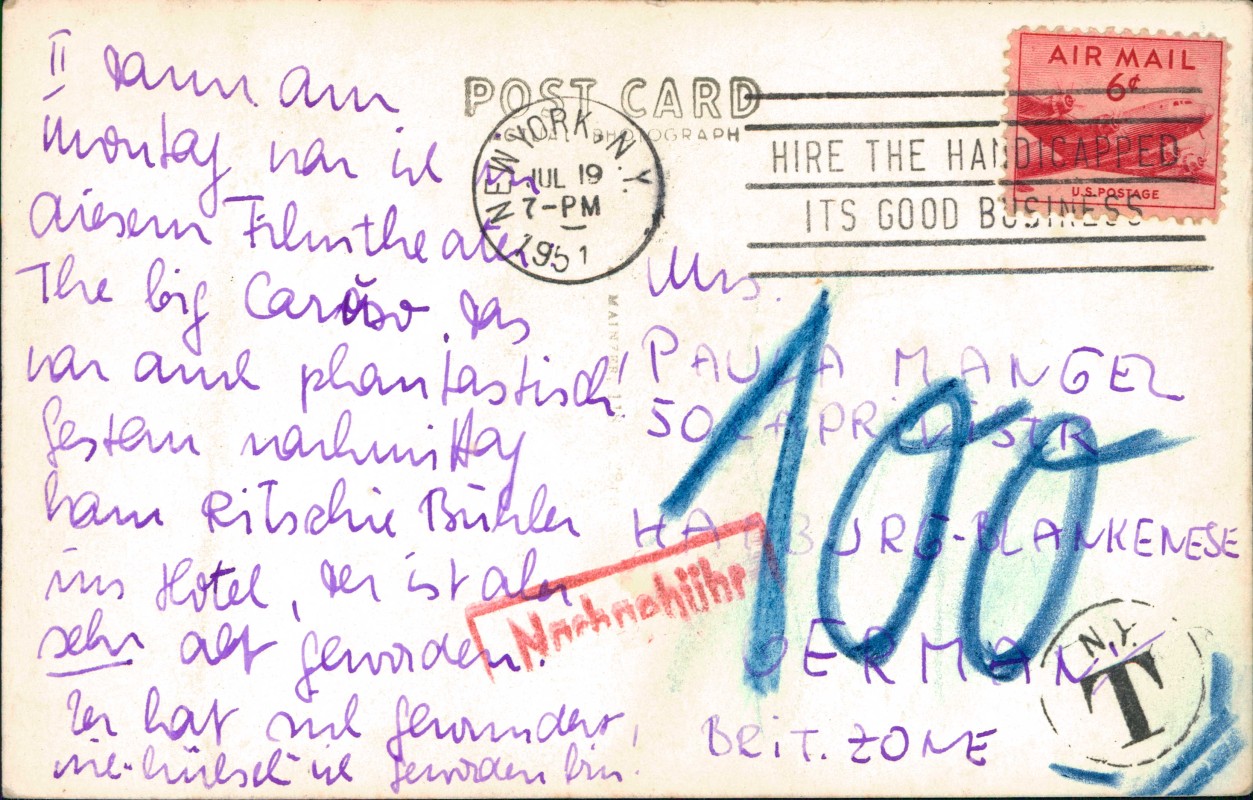 II dann am
montag war ich in
diesem Filmtheater
The big Caruso, das
war auch phantastisch!
Gestern nachmittag
kam Ritschie Bühler
ins Hotel, der ist aber
sehr alt geworden.
Der hat sich gewundert,
wie hübsch ich geworden bin.
POST CARD
PHOTOGRAPH
NEW YORK, N.Y.
JUL 19
7-PM
1951
AIR MAIL
6¢
U.S. POSTAGE
HIRE THE HANDICAPPED
ITS GOOD BUSINESS
Mrs.
PAULA MANGEL
HAMBURG-BLANKENESE
GERMANY
BRIT. ZONE
100
Nachgebühr
N.Y.
T